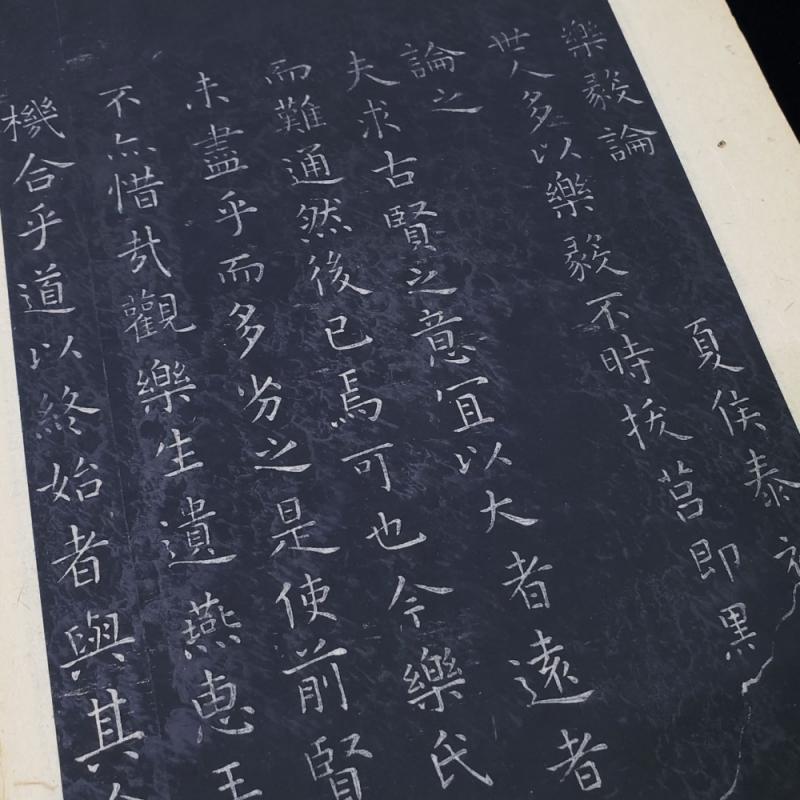 樂毅論 夏侯泰
世人多以樂毅不時拔莒即墨
論之
夫求古賢之意宜以大者遠者
而難通然後已焉可也今樂氏
未盡乎而多劣之是使前賢
不亦惜哉觀樂生遺燕惠王
機合乎道以終始者與其